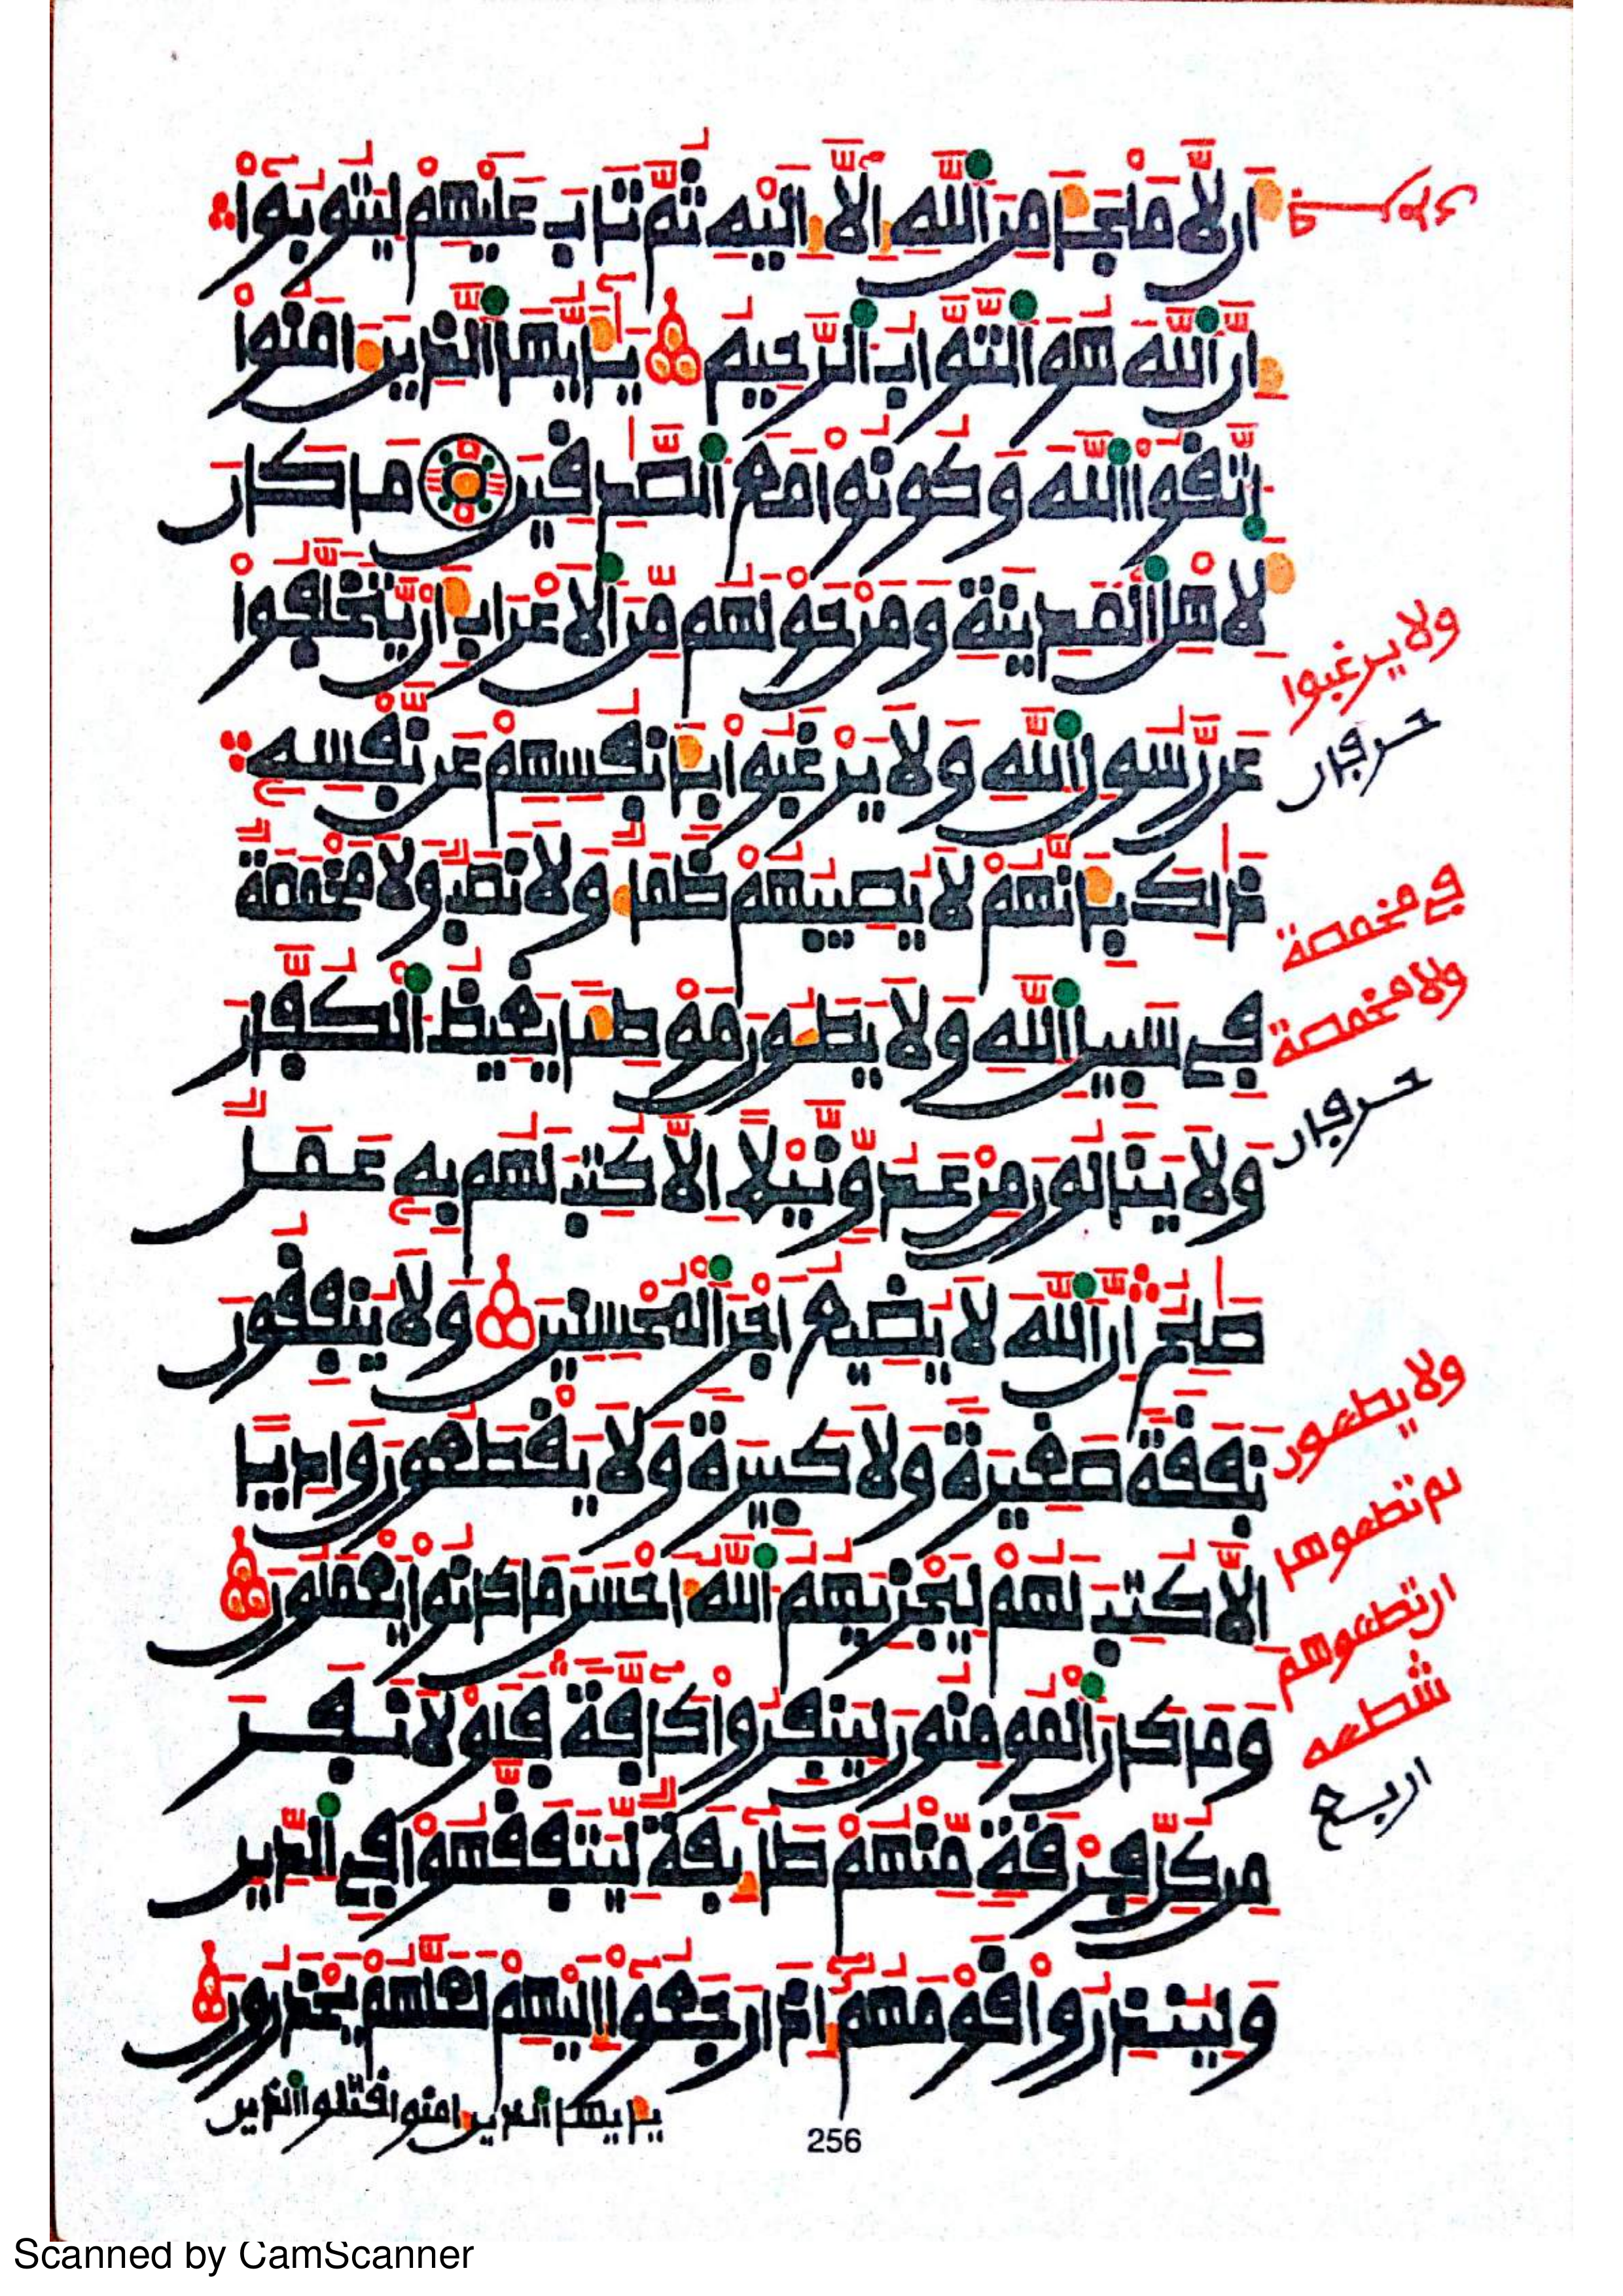 أَن لَّا مَلْجَأَ مِنَ اللَّهِ إِلَّا إِلَيْهِ ثُمَّ تَابَ عَلَيْهِمْ لِيَتُوبُوا
إِنَّ اللَّهَ هُوَ التَّوَّابُ الرَّحِيمُ يَأَيُّهَا الَّذِينَ ءَامَنُوا
اتَّقُوا اللَّهَ وَكُونُوا مَعَ الصَّدِقِينَ مَا كَانَ
لِأَهْلِ الْمَدِينَةِ وَمَنْ حَوْلَهُم مِّنَ الْأَعْرَابِ أَن يَّتَخَلَّفُوا
عَن رَّسُولِ اللَّهِ وَلَا يَرْغَبُوا بِأَنفُسِهِمْ عَن نَّفْسِهِ
ذَلِكَ بِأَنَّهُمْ لَا يُصِيبُهُمْ ظَمَأٌ وَلَا نَصَبٌ وَلَا مَخْمَصَةٌ
فِي سَبِيلِ اللَّهِ وَلَا يَطَـُٔونَ مَوْطِئًا يَغِيظُ الْكُفَّارَ
وَلَا يَنَالُونَ مِنْ عَدُوٍّ نَّيْلًا إِلَّا كُتِبَ لَهُم بِهِ عَمَلٌ
صَلِحٌ إِنَّ اللَّهَ لَا يُضِيعُ أَجْرَ الْمُحْسِنِينَ وَلَا يُنفِقُونَ
نَفَقَةً صَغِيرَةً وَلَا كَبِيرَةً وَلَا يَقْطَعُونَ وَادِيًا
إِلَّا كُتِبَ لَهُمْ لِيَجْزِيَهُمُ اللَّهُ أَحْسَنَ مَا كَانُوا يَعْمَلُونَ
وَمَا كَانَ الْمُومِنُونَ لِيَنفِرُوا كَافَّةً فَلَوْلَا نَفَرَ
مِن كُلِّ فِرْقَةٍ مِّنْهُمْ طَائِفَةٌ لِّيَتَفَقَّهُوا فِي الدِّينِ
وَلِيُنذِرُوا قَوْمَهُمْ إِذَا رَجَعُوا إِلَيْهِمْ لَعَلَّهُمْ يَحْذَرُونَ
يأيها الذين ءامنوا قتلوا الذين
256
ولا يرغبوا
حرفان
في مخمصة
ولا مخمصة
حرفان
ولا يطون
لم تطوها
ان تطوهم
شطه
اربع
Scanned by CamScanner